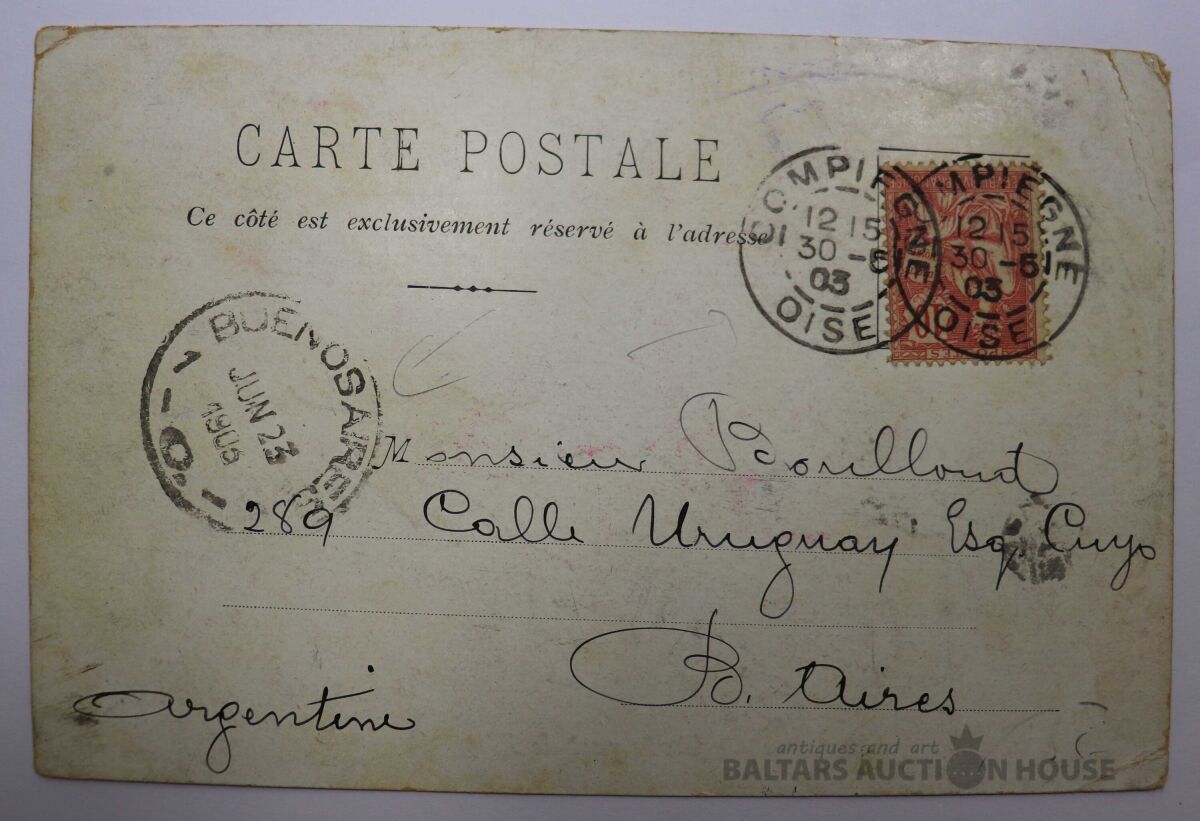 CARTE POSTALE
Ce côté est exclusivement réservé à l'adresse
COMPIEGNE
12 15
30 -5
03
OISE
COMPIEGNE
12 15
30 -5
03
OISE
BUENOS AIRES
JUN 23
Monsieur Bouilloud
289 Calle Uruguay Esq. Cuyo
B. Aires
Argentine
antiques and art
BALTARS AUCTION HOUSE